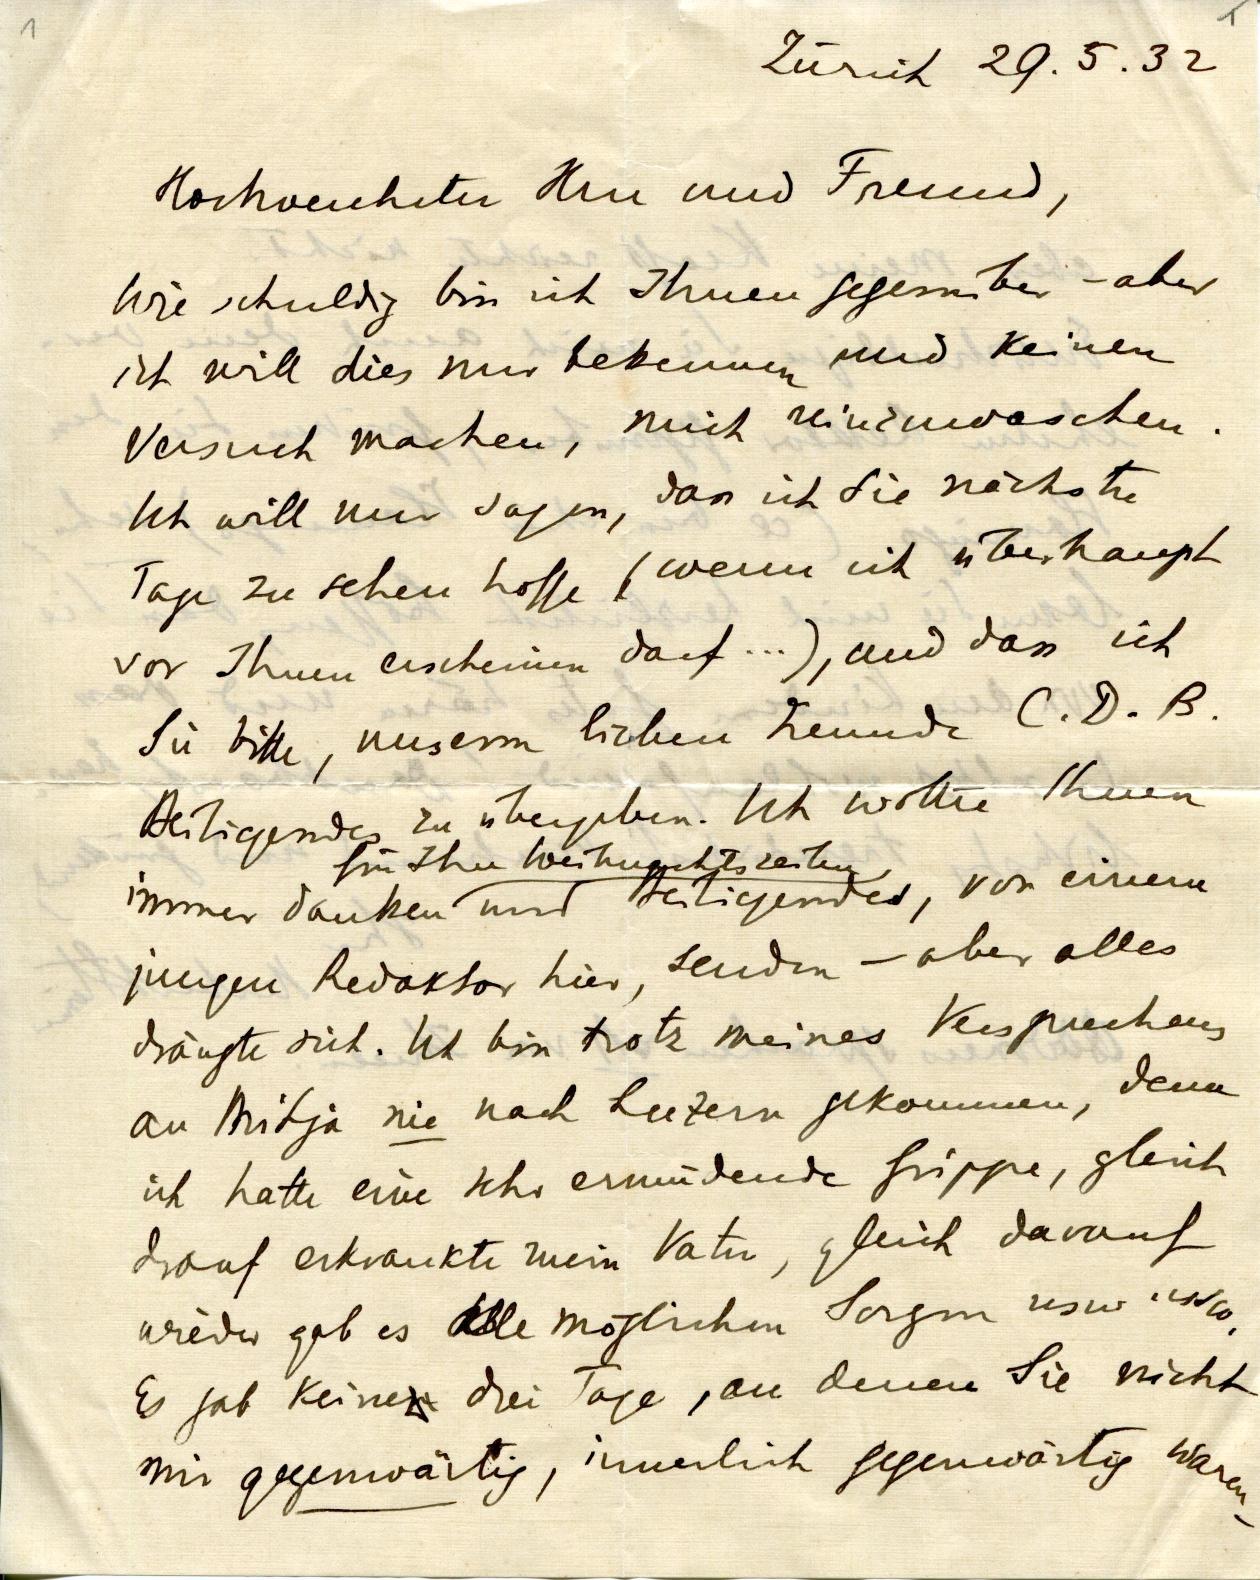 1
Zürich 29.5.32
Hochverehrter Herr und Freund,
Wie schuldig bin ich Ihnen gegenüber – aber
ich will dies nur bekennen und keinen
Versuch machen, mich reinzuwaschen.
Ich will nur sagen, dass ich Sie nächste
Tage zu sehen hoffe (wenn ich überhaupt
vor Ihnen erscheinen darf ...), und dass ich
Sie bitte, unserm lieben Freunde C. D. B.
Beiliegendes zu übergeben. Ich wollte Ihnen
für Ihre Weihnachtszeilen
immer danken und Beiliegendes, von einem
jungen Redaktor hier, senden – aber alles
drängte sich. Ich bin trotz meines Versprechens
an Mitja nie nach Luzern gekommen, denn
ich hatte eine sehr ermüdende Grippe, gleich
drauf erkrankte mein Vater, gleich darauf
wieder gab es alle möglichen Sorgen usw usw.
Es gab keine drei Tage, an denen Sie nicht
mir gegenwärtig, innerlich gegenwärtig waren –